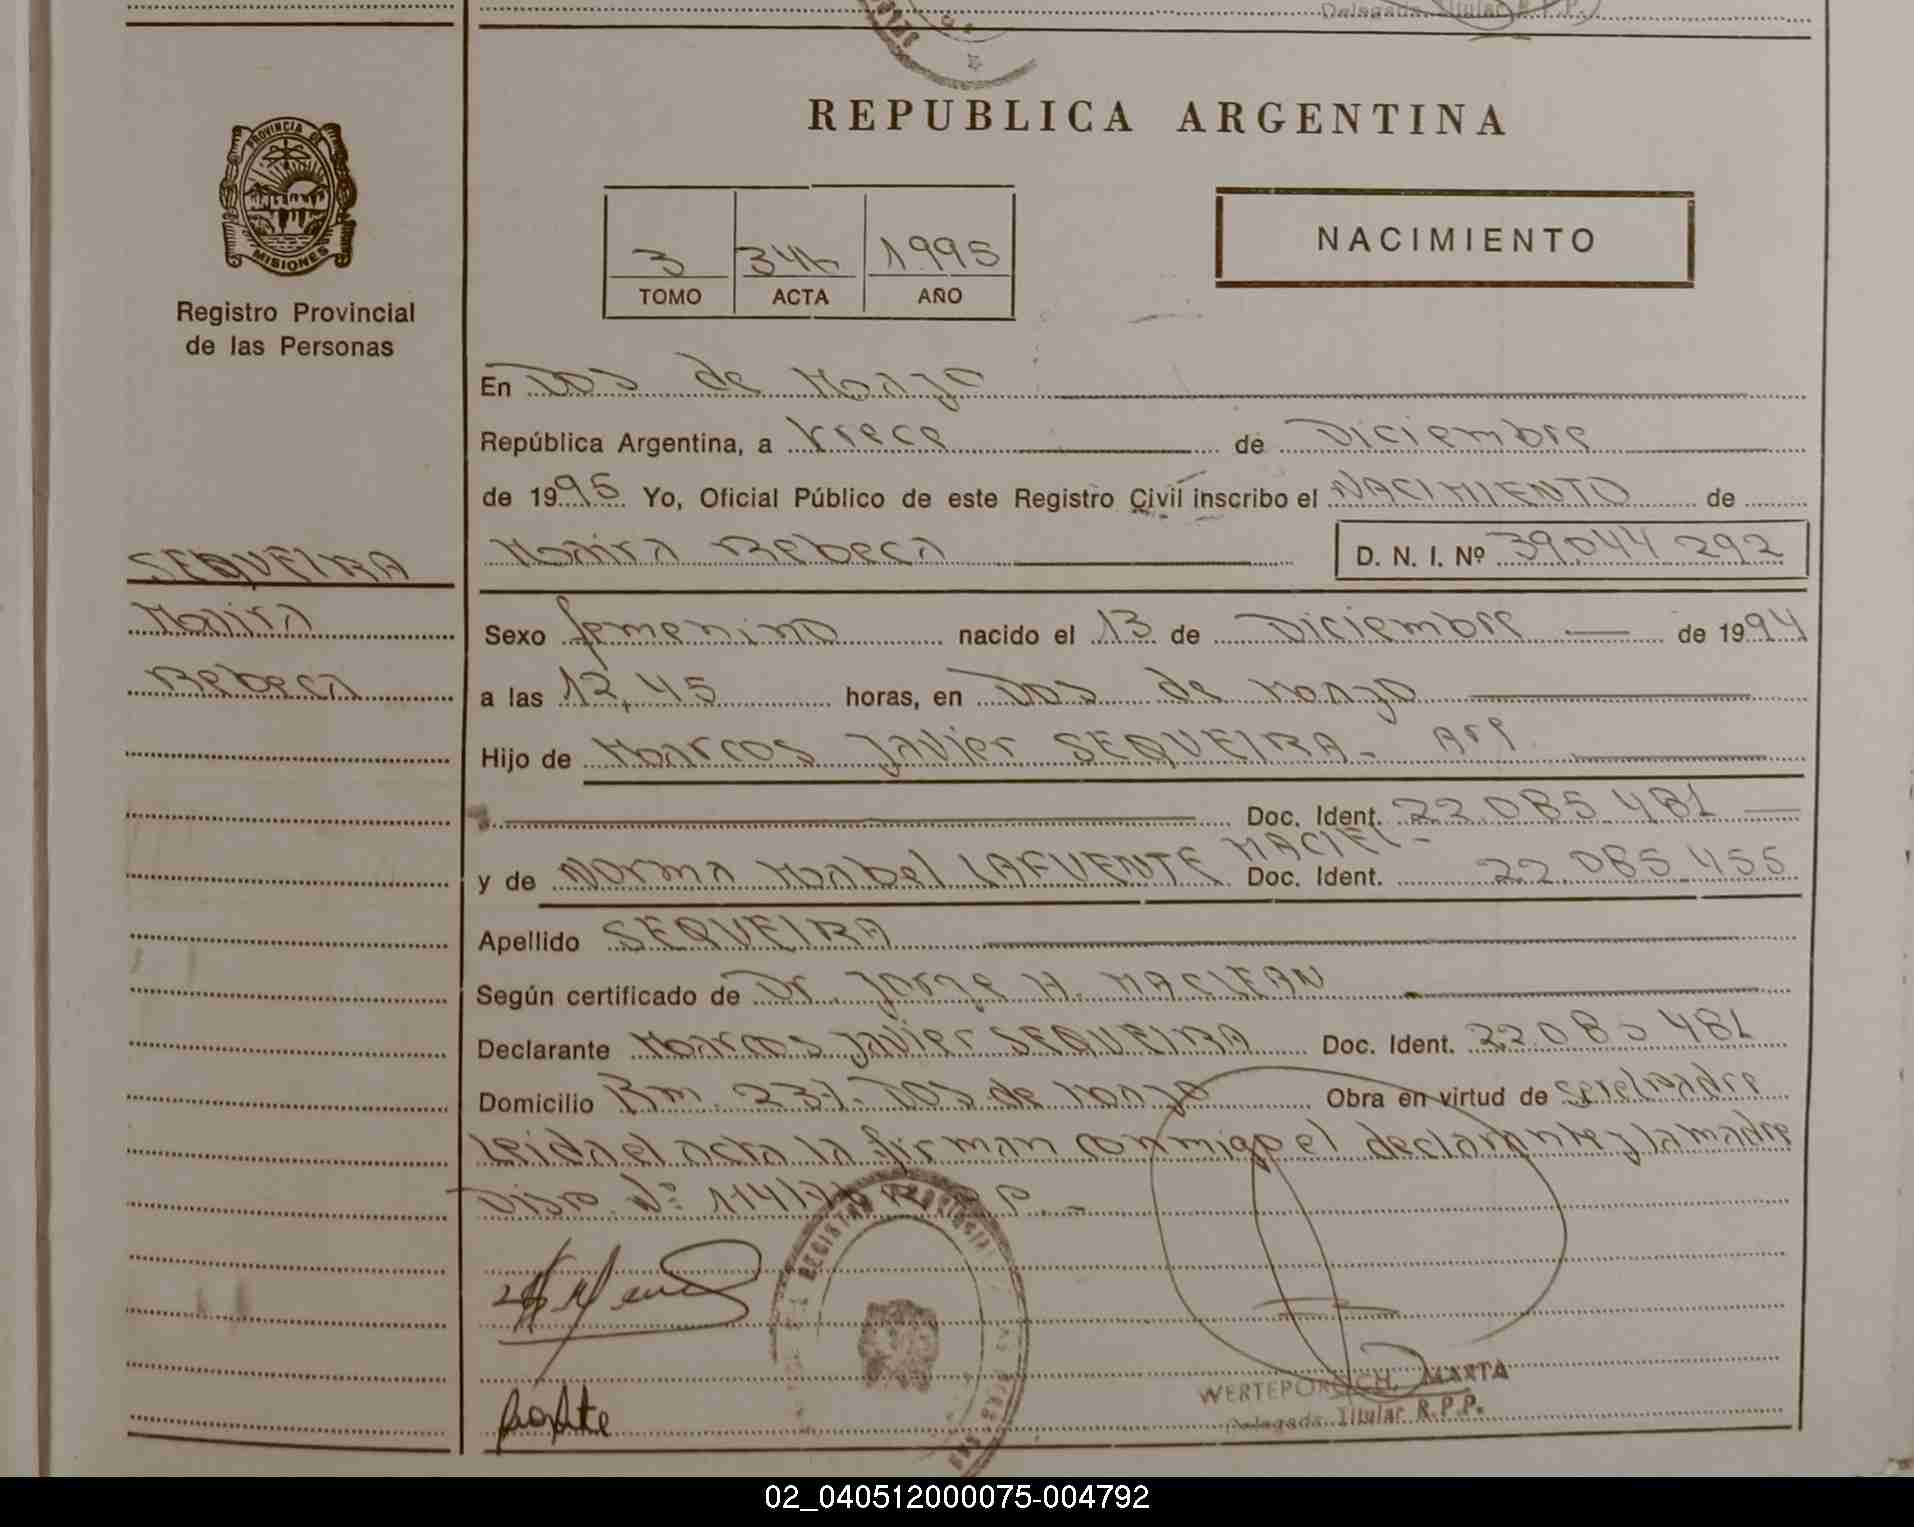 Delegada Titular R.P.P.
REPUBLICA ARGENTINA
PROVINCIA DE
MISIONES
Registro Provincial
de las Personas
3 344 1995
TOMO ACTA AÑO
NACIMIENTO
En Dos de Mayo
República Argentina, a trece de Diciembre
de 1995 Yo, Oficial Público de este Registro Civil inscribo el NACIMIENTO de
Maira Rebeca D. N. I. Nº 39.044.292
SEQUEIRA
Maira
Rebeca
Sexo femenino nacido el 13 de Diciembre de 1994
a las 12,45 horas, en Dos de Mayo
Hijo de Marcos Javier SEQUEIRA- Arg.
Doc. Ident. 22.085.481
y de Norma Mabel LAFUENTE MACIEL- Doc. Ident. 22.085.455
Apellido SEQUEIRA
Según certificado de Dr. Jorge H. MACLEAN
Declarante Marcos Javier SEQUEIRA Doc. Ident. 22.085.481
Domicilio Km. 237- Dos de Mayo Obra en virtud de ser el padre
Leida el acta la firman conmigo el declarante y la madre
Disp. Nº R.P.P.-
REGISTRO PROVINCIAL
MARTA
Delegada Titular R.P.P.
02_040512000075-004792